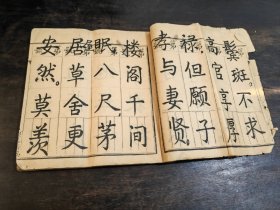 鬓斑。不求
高官享厚
禄但愿子
孝与妻贤。
楼阁千间
眠八尺，茅
居草舍更
安然。莫羡